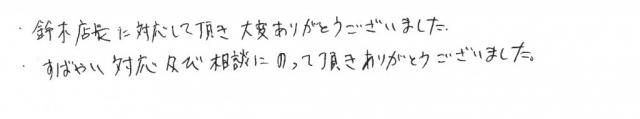 ・鈴木店長に対応して頂き大変ありがとうございました.
・すばやい対応及び相談にのって頂きありがとうございました。